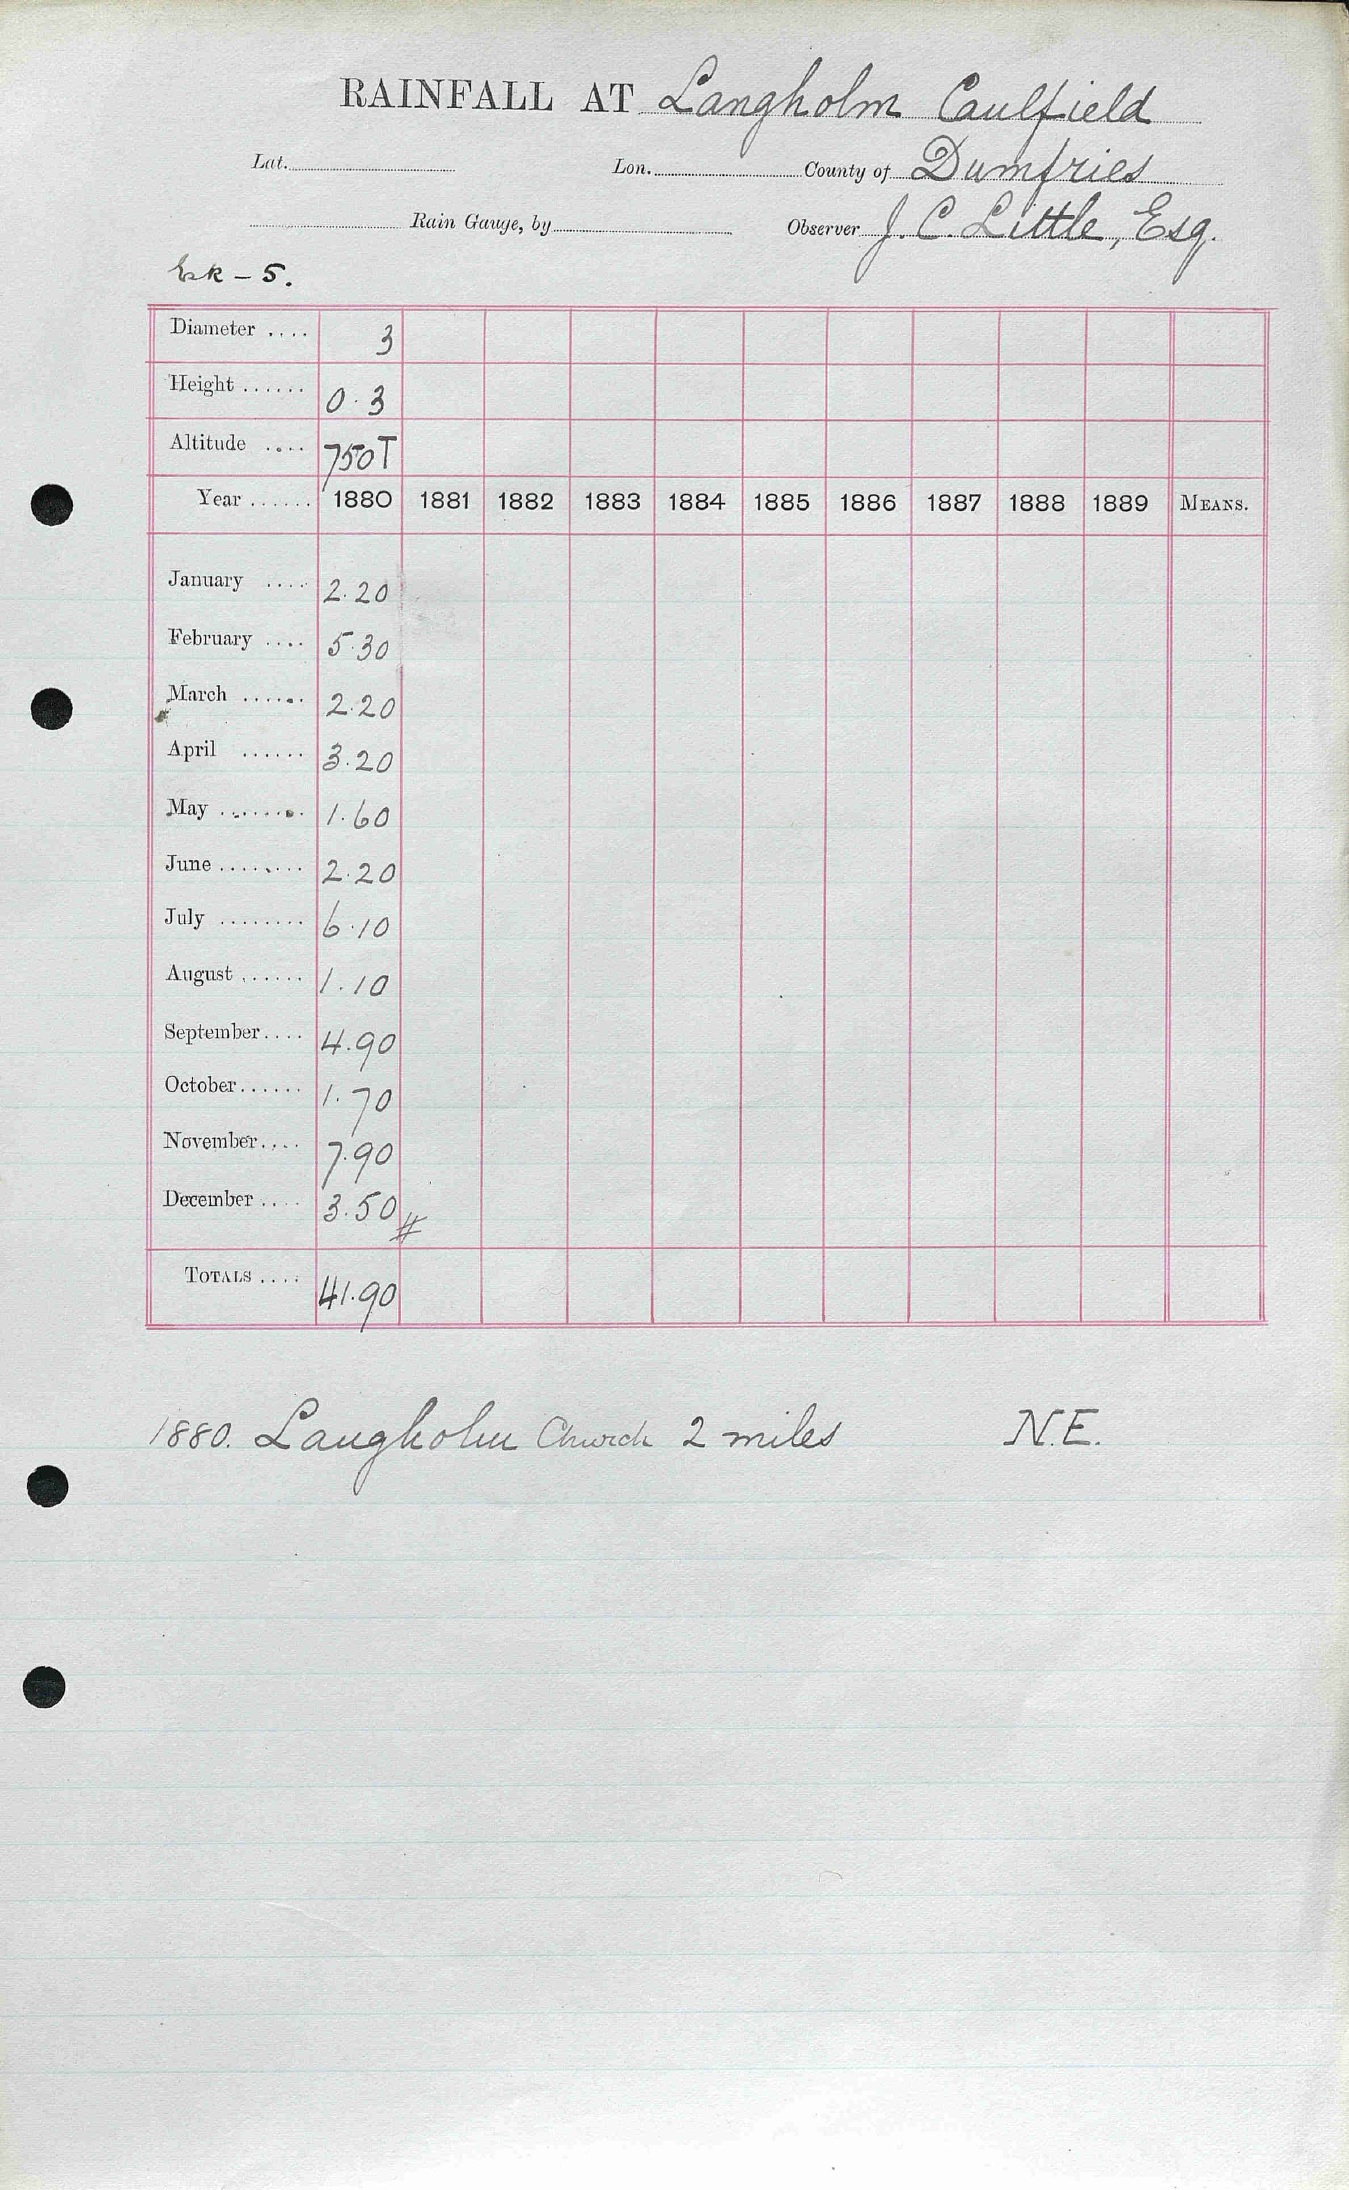 RAINFALL AT Langholm Caulfield
Lat. Lon. County of Dumfries
Rain Gauge, by Observer J. C. Little, Esq.
Esk - 5.
Diameter .... 3
Height ...... 0.3
Altitude .... 750T
Year ...... 1880 1881 1882 1883 1884 1885 1886 1887 1888 1889 MEANS.
January .... 2.20
February .... 5.30
March ...... 2.20
April ...... 3.20
May ........ 1.60
June ........ 2.20
July ........ 6.10
August ...... 1.10
September .... 4.90
October ...... 1.70
November .... 7.90
December .... 3.50 #
TOTALS .... 41.90
1880. Langholm Church 2 miles N.E.